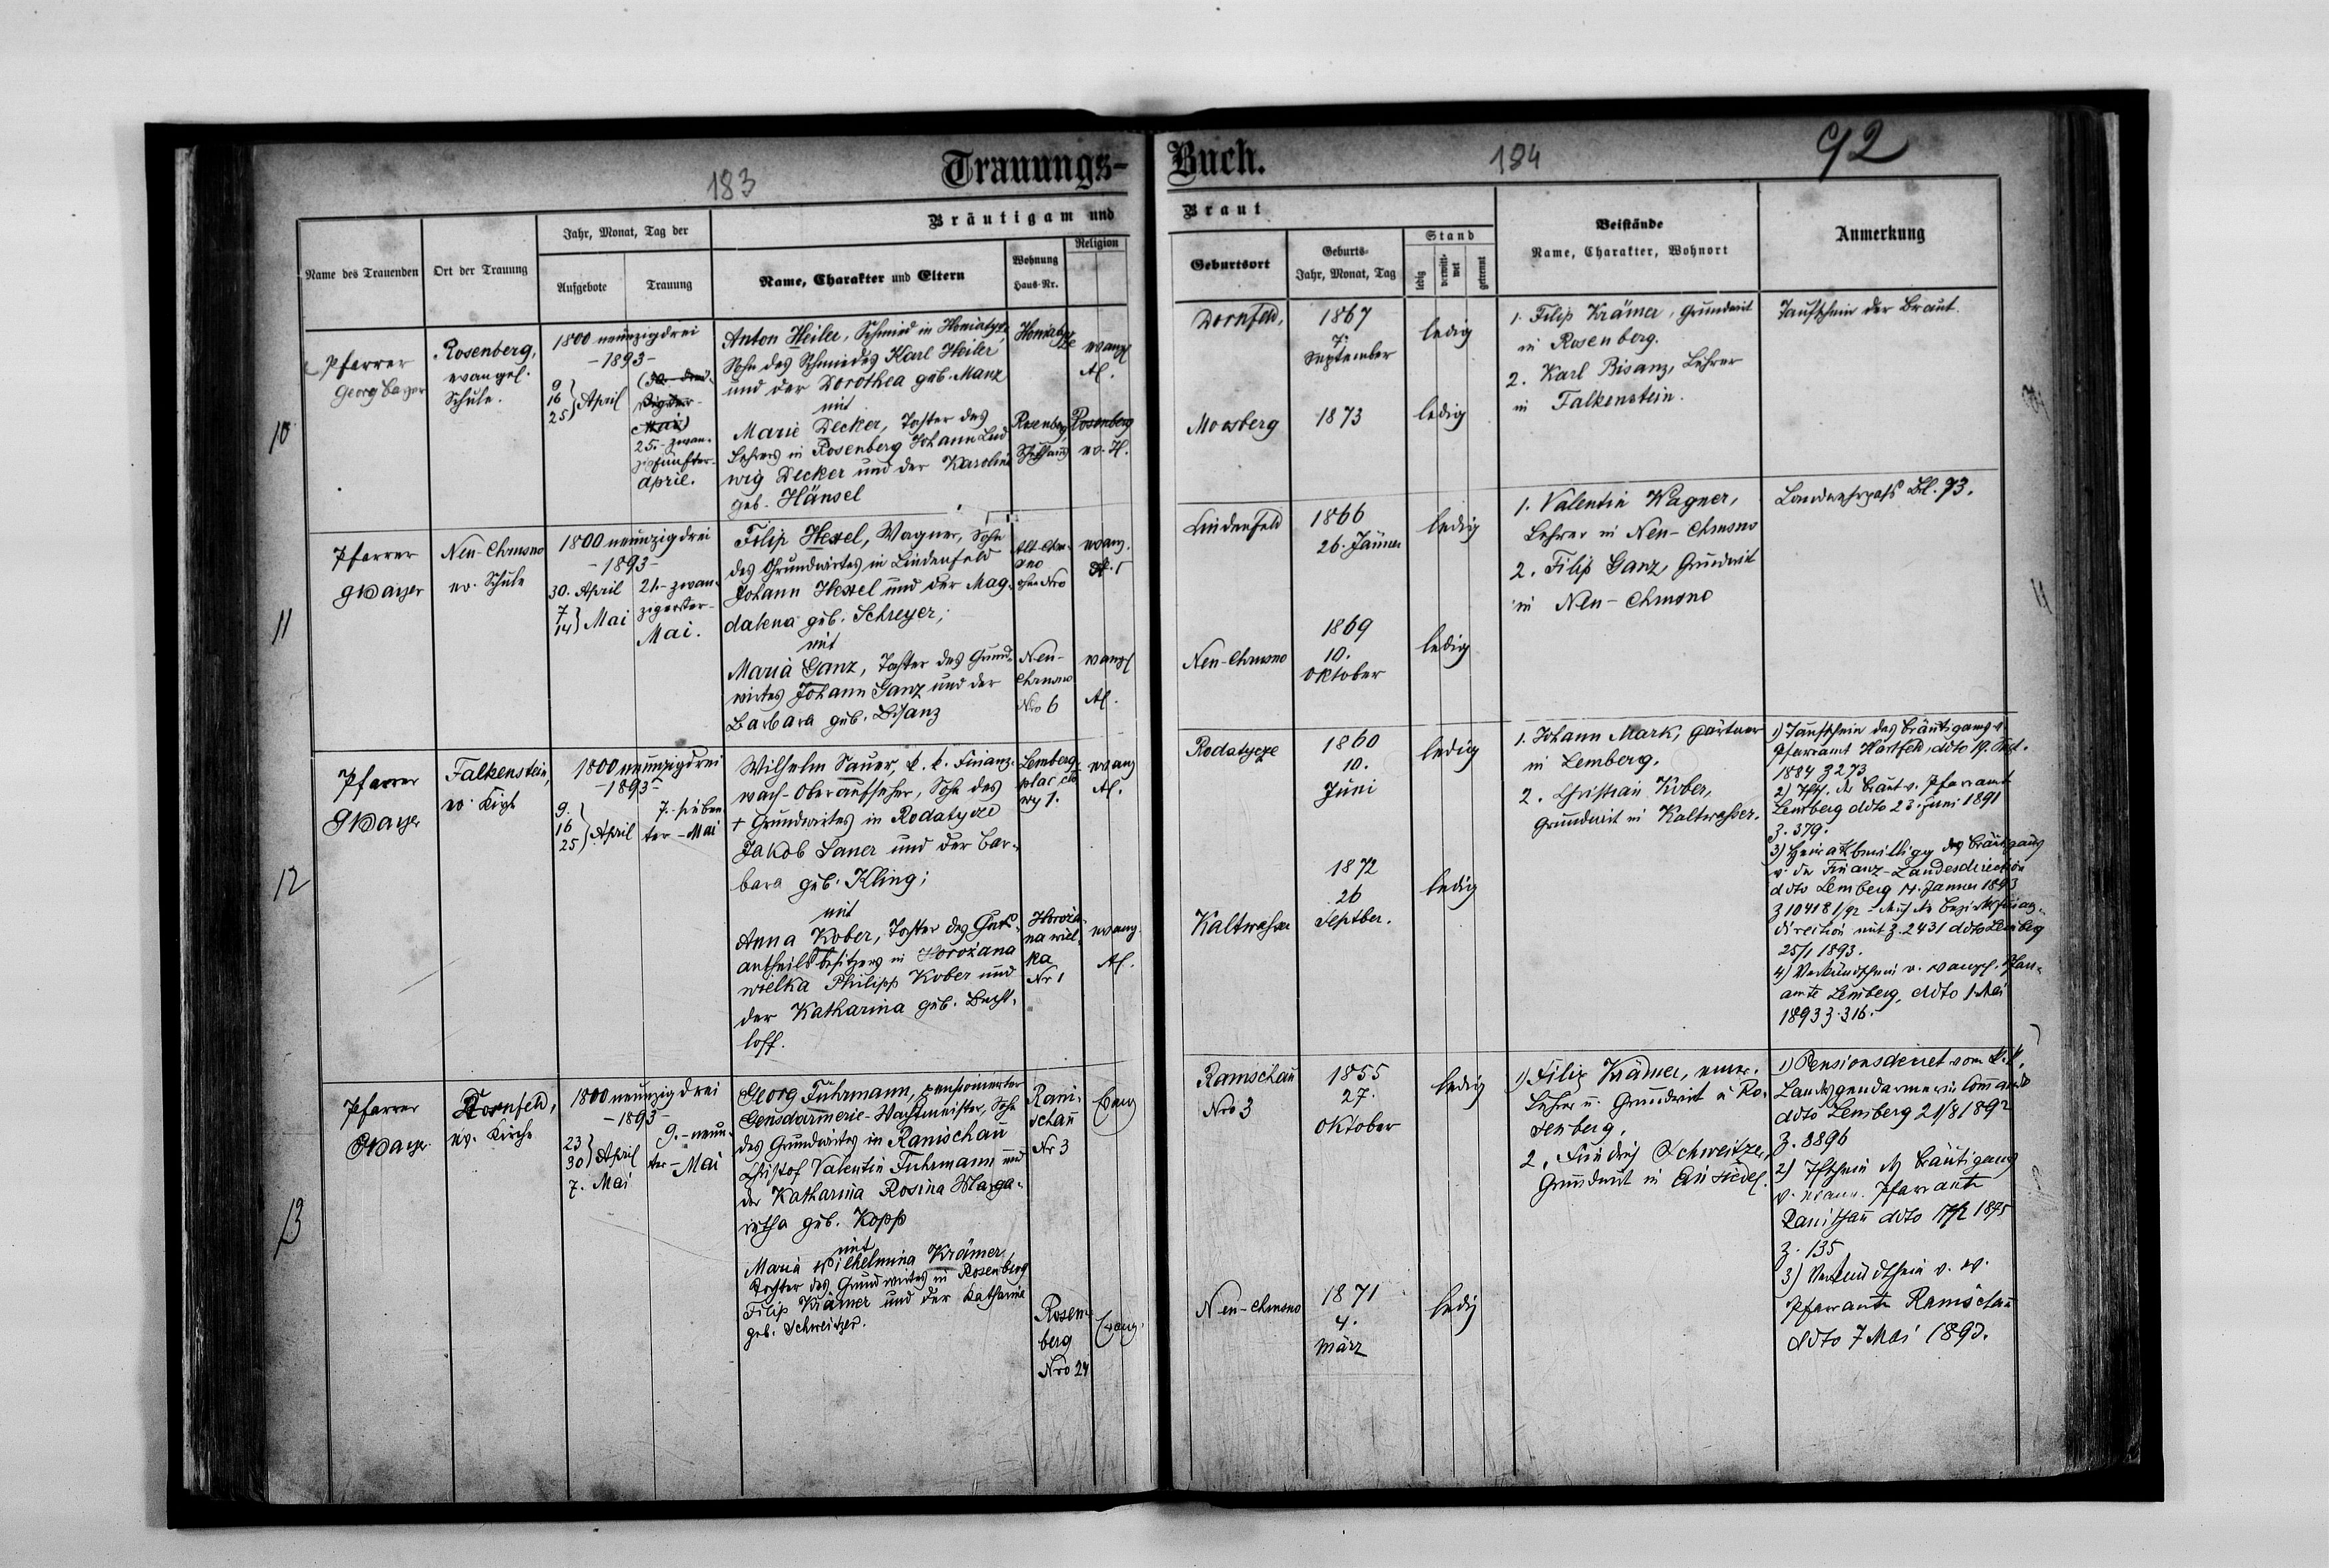 183
Trauungs-
Buch.
184
92
Name des Trauenden
Ort der Trauung
Jahr, Monat, Tag der
Aufgebote
Trauung
Bräutigam und
Name, Charakter und Eltern
Wohnung
Haus-Nr.
Religion
Braut
Geburtsort
Geburts-
Jahr, Monat, Tag
Stand
ledig
verwitt-
wet
getrennt
Beistände
Name, Charakter, Wohnort
Anmerkung
10
Pfarrer
Georg Bayer
Rosenberg,
evangel.
Schule.
1800 neunzigdrei
-1893-
9
16
25 } April
Mai)
25.- zwan-
zigfünfter-
April.
Anton Heiler, Schmied in Honiatycze
Sohn des Schmiedes Karl Heiler
und der Dorothea geb. Manz
mit
Marie Decker, Tochter des
Lehrers in Rosenberg Johann Lud
wig Decker und der Karoline
geb. Hänsel
Honiatyc
ze
Rosenberg,
Schulhaus
evangl
A.C.
Rosenberg
ev. H.
Dornfeld,
1867
7.
September
ledig
Moosberg
1873
ledig
1. Filip Krämer, Grundwirt
in Rosenberg.
2. Karl Bisanz, Lehrer
in Falkenstein.
Taufschein der Braut.
11
Pfarrer
GBayer
Neu-Chrusno
ev. Schule
1800 neunzig drei
-1893-
30. April
7
14 } Mai
21- zwan-
zigerster-
Mai.
Filip Hexel, Wagner, Sohn
des Grundwirtes in Lindenfeld
Johann Hexel und der Mag-
dalena geb. Schreyer;
mit
Maria Ganz, Tochter des Grund-
wirtes Johann Ganz und der
Barbara geb. Bisanz
Alt-Chru-
sno
ohne Nro
Neu-
Chrusno
Nro 6
evang.
evangl
A.C.
Lindenfeld
1866
26. Jänner
ledig
Neu-Chrusno
1869
10.
Oktober
ledig
1. Valentin Wagner,
Lehrer in Neu-Chrusno
2. Filip Ganz, Grundwirt
in Neu-Chrusno
Landwehrpass Bl. 73.
12
Pfarrer
GBayer
Falkenstein,
ev. Kirche
1800 neunzigdrei
-1893-
9.
16
25 } April
7.- sieben
ter - Mai
Wilhelm Sauer, k. k. Finanz-
wach-Oberaufseher, Sohn des
+ Grundwirtes in Rodatycze
Jakob Sauer und der Bar-
bara geb. Kling;
mit
Anna Kober, Tochter des Guts-
antheilsbesitzers in Horożana
wielka Philipp Kober und
der Katharina geb. Becht-
loff.
Lemberg
wy 1.
Horoża-
na wiel-
ka
Nr 1
evang
A.C.
evang.
A.C.
Rodatycze
1860
10.
Juni
ledig
Kaltwasser
1872
26
Septber.
ledig
1. Johann Mark, Gärtner
in Lemberg.
2. Christian Kober,
Grundwirt in Kaltwasser.
1) Taufschein des Bräutigams v.
Pfarramt Hartfeld, ddto 19. Sept.
1884 Z 273
2) Tfsch. der Braut v. Pfarramt
Lemberg ddto 23. Juni 1891
Z. 379.
3) Heiratsbewilligg des Bräutigams
v. der Finanz-Landesdirection
ddto Lemberg 14. Jänner 1893
Z 104181/92 - der Bezirksfinanz-
direction mit Z. 2431 ddto Lemberg
25/1 1893.
4) Verkündschein v. evangl. Pfarr-
amte Lemberg, ddto 1. Mai
1893 Z. 316.
13
Pfarrer
GBayer
Dornfeld,
ev. Kirche
1800 neunzig drei
-1893-
23
30 } April
7. Mai
9.- neun-
ter - Mai
Georg Fuhrmann, pensionierter
Gensdarmerie-Wachtmeister, Sohn
des Grundwirtes in Ranischau
Christof Valentin Fuhrmann und
der Katharina Rosina Marga-
retha geb. Kopp
mit
Maria Wilhelmina Krämer,
Tochter des Grundwirtes in Rosenberg
Filip Krämer und der Katharina
geb. Schweitzer.
Rani-
schau
Nr 3
Rosen-
berg
Nro 24
Evang
Evang.
Ranischau
Nro 3
1855
27.
Oktober
ledig
Neu-Chrusno
1871
4.
März
ledig
1) Filip Krämer, emer.
Lehrer u. Grundwirt in Ro-
senberg.
2. Friedrich Schweitzer,
Grundwirt in Einsiedel.
1) Pensionsdecret vom k. k.
Landesgendarmerie Command
ddto Lemberg 21/8 1892
Z. 8896
2) Tfschein des Bräutigams
v. evang. Pfarramte
Ranischau ddto 1875
Z. 135
3) Verkündschein v. ev.
Pfarramte Ranischau
ddto 7 Mai 1893.